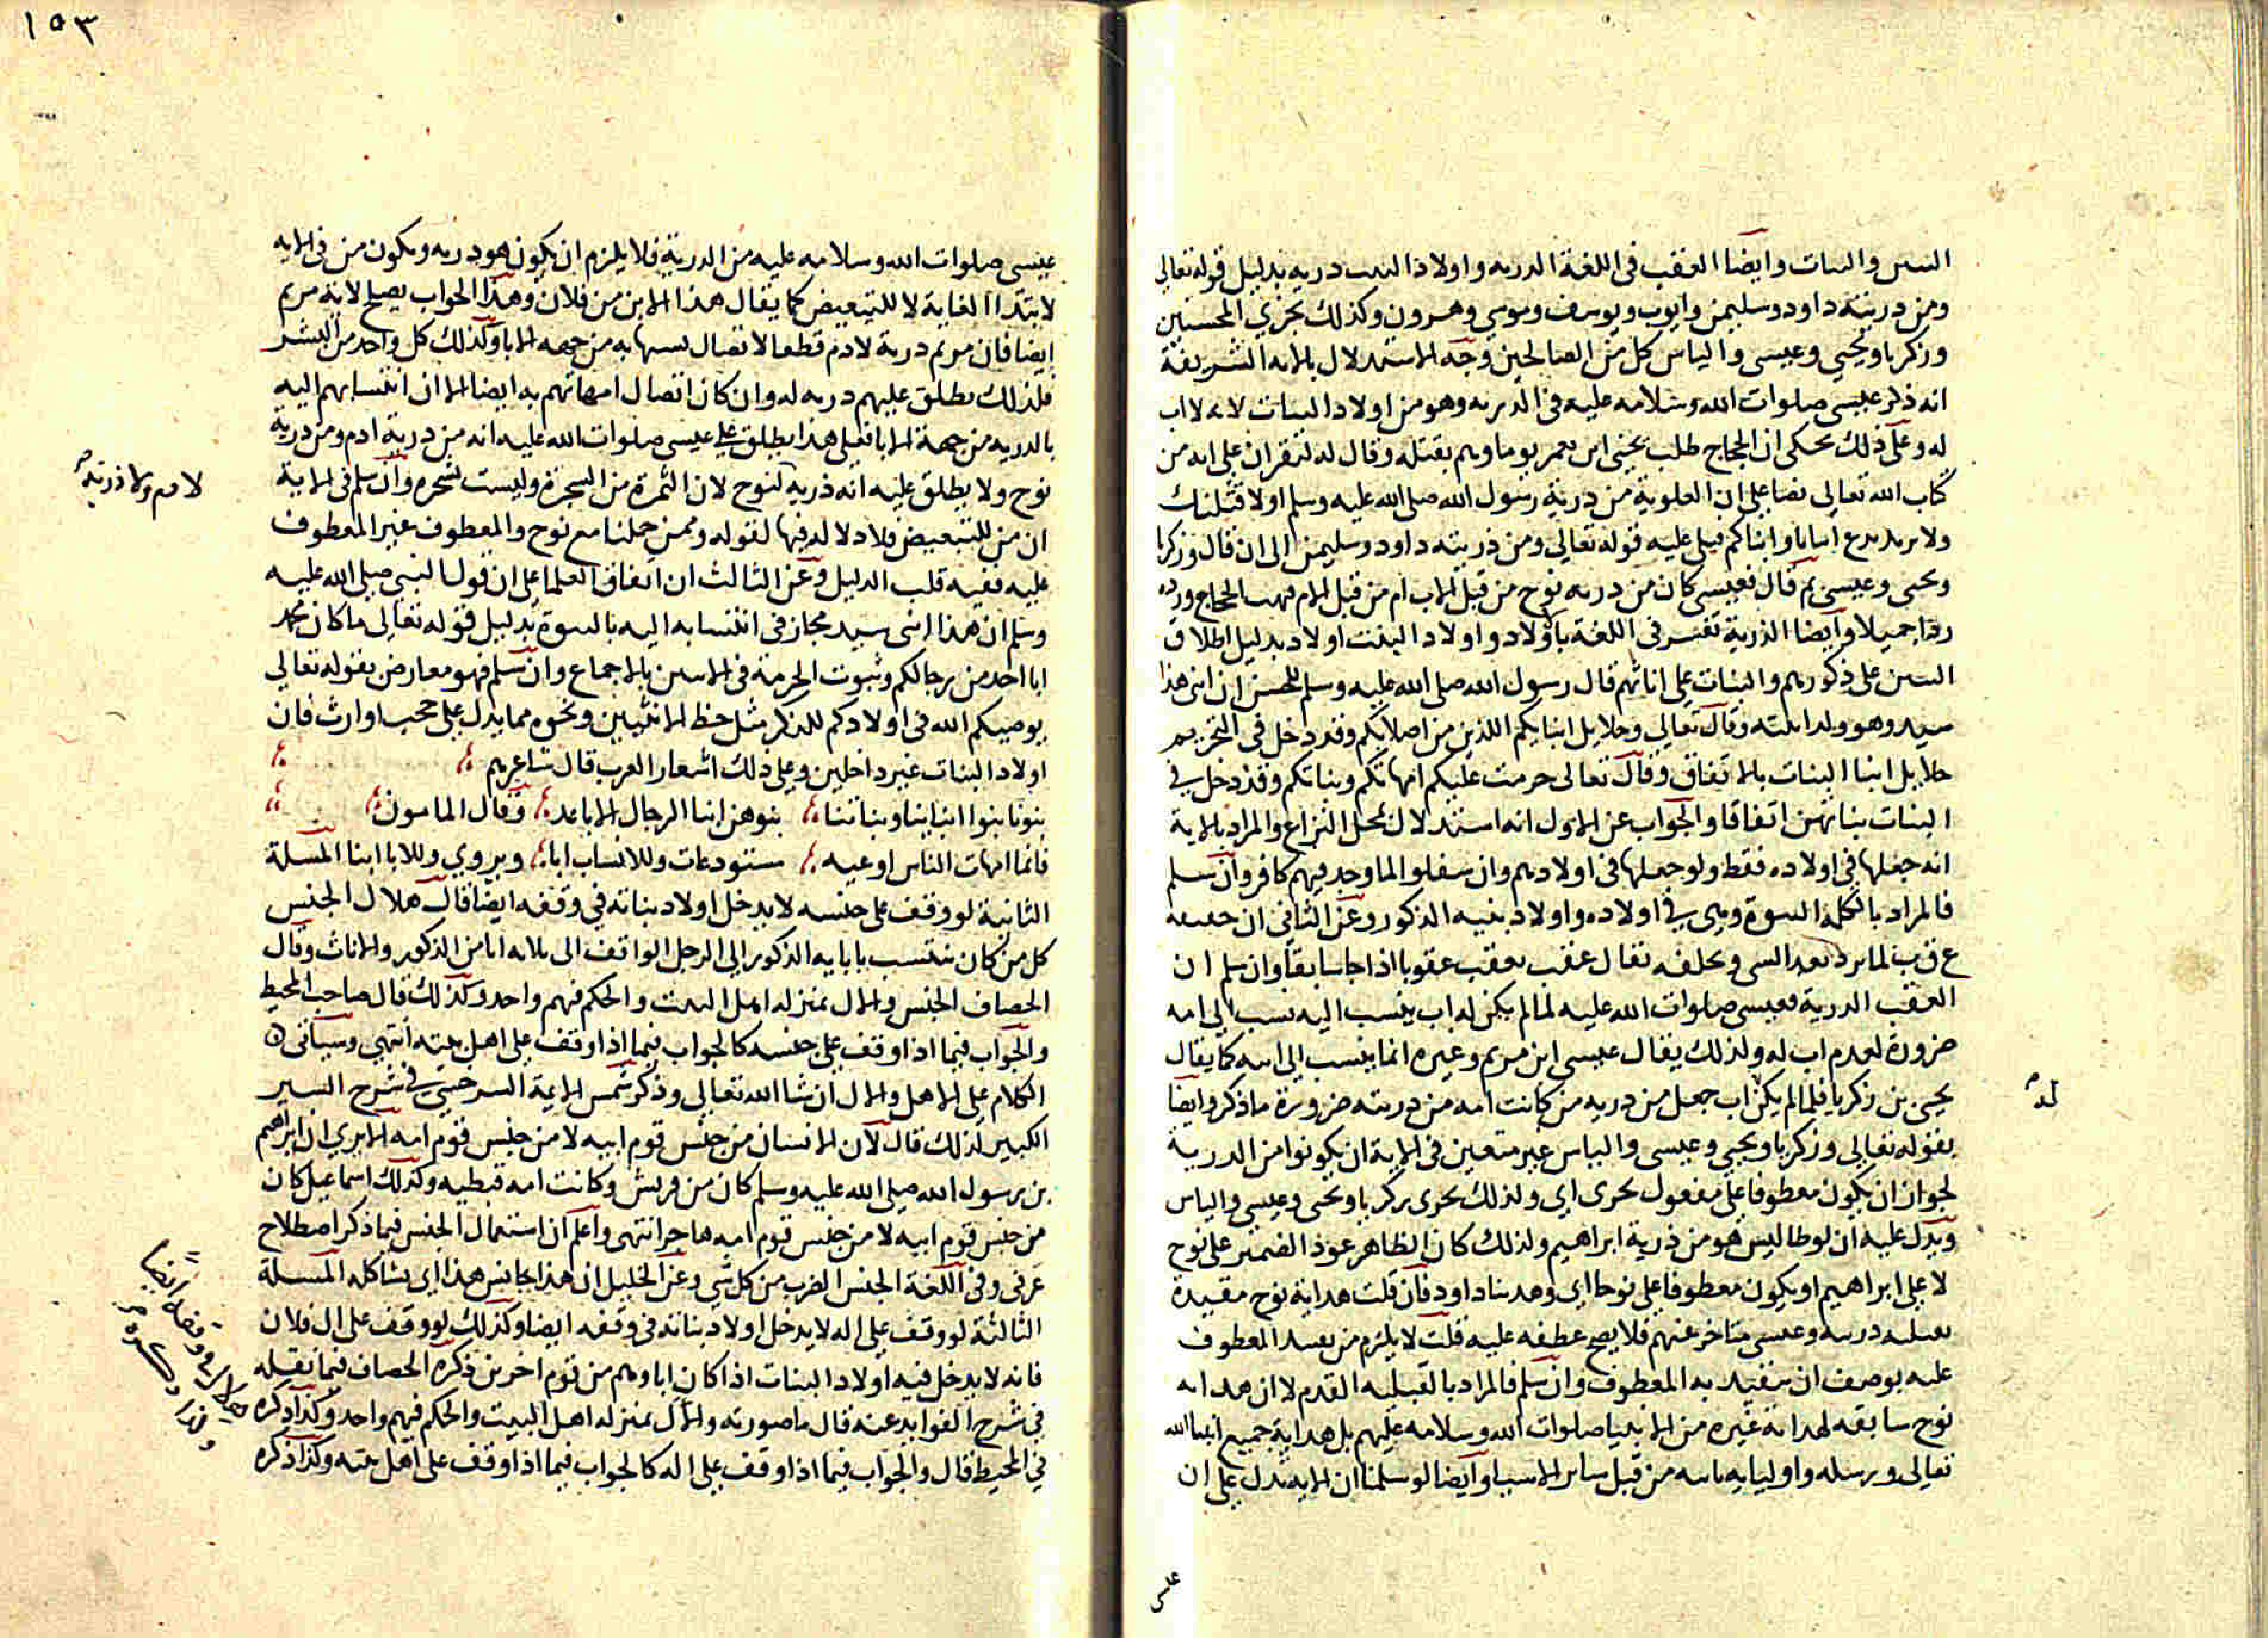 البنين والبنات وايضا العقب في اللغة الذريه واولاد البنت ذريه بدليل قوله تعالى
ومن ذريته داود وسليمن وايوب ويوسف وموسي وهرون وكذلك نجزي المحسنين
وزكريا ويحيي وعيسى والياس كل من الصالحين وجه الاستدلال بالايه الشريفة
انه ذكر عيسى صلوات الله وسلامه عليه في الذريه وهو من اولاد البنات لانه لا اب
له وعلى ذلك يحكى ان الحجاج طلب يحيى ابن يعمر يوما وهم بقتله وقال له لتقران علي ايه من
كتاب الله تعالي نصا على ان العلوية من ذرية رسول الله صلى الله عليه وسلم او لاقتلنك
ولا نريد ندع ابنانا وابناكم فتلى عليه قوله تعالي ومن ذريته داود وسليمن الى ان قال وزكريا
ويحيى وعيسى ثم قال فعيسى كان من ذريه نوح من قبل الاب ام من قبل الام فبهت الحجاج ورده
ردا جميلا وايضا الذرية تفسر في اللغة باولاد واولاد البنت اولاد بدليل اطلاق
البنين على ذكورهم والبنات على اناثهم قال رسول الله صلى الله عليه وسلم للحسن ان ابني هذا
سيد وهو ولد ابنته وقال تعالي وحلايل ابنايكم الذين من اصلابكم وقد دخل في التحريم
حلايل ابنا البنات بالاتفاق وقال تعالى حرمت عليكم امهاتكم وبناتكم وقد دخل في
البنات بناتهن اتفاقا والجواب عن الاول انه استدلال بمحل النزاع والمراد بالاية
انه جعلها في اولاده فقط ولو جعلها في اولادهم وان سفلوا لما وجد فيهم كافر وان سلم
فالمراد بالكلمة النبوة وهي في اولاده واولاد بنيه الذكور وعن الثاني ان حقيقة
ع ق ب لما يرد بعد الشى ويخلفه تقال عقب يعقب عقوبا اذا جا سابقا وان سلم ان
العقب الذرية فعيسى صلوات الله عليه لما لم يكن له اب ينسب اليه نسب الي امه
ضرورة لعدم اب له ولذلك يقال عيسى ابن مريم وغيره انما ينسب الي ابيه كما يقال
يحيى بن زكريا فلما لم يكن اب جعل من ذريه من كانت امه من ذريته ضرورة ما ذكر وايضا
له
بقوله تعالي وزكريا ويحيي وعيسى والياس غير متعين في الاية ان يكونوا من الذرية
لجواز ان يكون معطوفا على مفعول نجزى اي ولذلك نجزى زكريا ويحيى وعيسى والياس
ويدل عليه ان لوطا ليس هو من ذرية ابراهيم ولذلك كان الظاهر عود الضمير على نوح
لا على ابراهيم او يكون معطوفا على نوحا اي وهدينا داود فان قلت هداية نوح مقيدة
بقبليه ذريته وعيسى متاخر عنهم فلا يصح عطفه عليه قلت لا يلزم من تقييد المعطوف
عليه بوصف ان يتقيد به المعطوف وان سلم فالمراد بالقبليه القدم لا ان هدايه
نوح سابقه لهداية غيره من الانبيا صلوات الله وسلامه عليهم بل هداية جميع انبيا الله
تعالى ورسله واوليايه ثابته من قبل ساير الاسباب وايضا لو سلمنا ان الايه تدل على ان
عيسى
١٥٣
عيسى صلوات الله وسلامه عليه من الذرية فلا يلزم ان يكون هو ذريه ويكون من في الايه
لابتدا الغاية لا للتبعيض كما يقال هذا الابن من فلان وهذا الجواب يصلح لاية مريم
ايضا فان مريم ذرية لادم قطعا لاتصال نسبها به من جهه الابا وكذلك كل واحد من البشر
فلذلك يطلق عليهم ذريه له وان كان اتصال امهاتهم به ايضا الا ان انتسابهم اليه
بالذريه من جهة الابا فعلى هذا يطلق على عيسى صلوات الله عليه انه من ذرية ادم ومن ذرية
نوح ولا يطلق عليه انه ذرية لنوح لان الثمرة من الشجرة وليست بشجره وان سلم في الاية
لادم ولا ذرية
ان من للتبعيض فلا دلاله فيها لقوله وممن حملنا مع نوح والمعطوف غير المعطوف
عليه ففيه قلب الدليل وعن الثالث ان اتفاق العلما على ان قول النبي صلى الله عليه
وسلم ان هذا ابنى سيد مجاز في انتسابه اليه بالبنوة بدليل قوله تعالى ما كان محمد
ابا احد من رجالكم وثبوت الحرمة في الابنين بالاجماع وان سلم فهو معارض بقوله تعالي
يوصيكم الله في اولادكم للذكر مثل حظ الانثيين ونحوه مما يدل على حجب او ارث فان
اولاد البنات غير داخلين وعلى ذلك اشعار العرب قال شاعرهم
بنونا بنوا ابناينا وبناتنا بنوهن ابنا الرجال الاباعد وقال المامون
فانما امهات الناس اوعيه مستودعات وللانساب ابا ويروي وللابا ابنا المسلة
الثانية لو وقف على جنسه لا يدخل اولاد بناته في وقفه ايضا قال هلال الجنس
كل من كان ينتسب بابايه الذكور الي الرجل الواقف الى ثلاثه ابا من الذكور والاناث وقال
الخصاف الجنس والال بمنزله اهل البيت والحكم فيهم واحد وكذلك قال صاحب المحيط
والجواب فيما اذا وقف على جنسه كالجواب فيما اذا وقف على اهل بيته انتهى وسياتى
الكلام على الاهل والال ان شا الله تعالى وذكر شمس الايمة السرخسي في شرح السير
الكبير لذلك قال لان الانسان من جنس قوم ابيه لا من جنس قوم امه الا يري ان ابراهيم
بن رسول الله صلى الله عليه وسلم كان من قريش وكانت امه قبطيه وكذلك اسماعيل كان
من جنس قوم ابيه لا من جنس قوم امه هاجر انتهى واعلم ان استعمال الجنس فيما ذكر اصطلاح
عرفى وفى اللغة الجنس الضرب من كل شي وعن الخليل ان هذا يجانس هذا اي يشاكله المسلة
الثالثة لو وقف على اله لا يدخل اولاد بناته في وقفه ايضا وكذلك لو وقف على ال فلان
فانه لا يدخل فيه اولاد البنات اذا كان اباوهم من قوم اخرين ذكره الخصاف فيما نقله
في شرح الفوايد عنه قال ما صورته والال بمنزله اهل البيت والحكم فيهم واحد وكذا ذكره
هلال في وقفه ايضا
في المحيط قال والجواب فيما اذا وقف على اله كالجواب فيما اذا وقف على اهل بيته وكذا ذكره